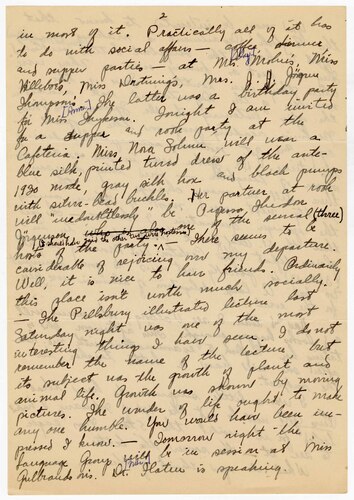 2
in most of it. Practically all of it has
to do with social affairs — coffee, dinner
and supper parties — at Mrs. Mohn's, Miss
(Thea)
Hilleboe's, Miss Drotning's, Mrs. J. Jörgen
Thompson's. The latter was a birthday party
(Anna)
for Miss Tonight I am invited
to a supper and rook party at the
Cafeteria. Miss Nora Solum will wear a
blue silk, printed tunic dress of the ante-
1930 mode, gray silk hose and black pumps
with silver-bead buckles. Her partner at rook
will "undoubtedly" be Professor Theodore
Jorgenson of the several (three)
hosts of the party — There seems to be
considerable of rejoicing over my departure.
Well, it is nice to have friends. Ordinarily
this place isn't worth much socially.
— The Pillsbury illustrated lecture last
Saturday night was one of the most
interesting things I have seen. I do not
remember the name of the lecture but
its subject was the growth of plant and
animal life. Growth was shown by moving
pictures. The wonder of life ought to make
any one humble. You would have been im-
pressed I know. — Tomorrow night the
Language Group will be in session at Miss
Gulbrandson's. Dr. Flaten is speaking.